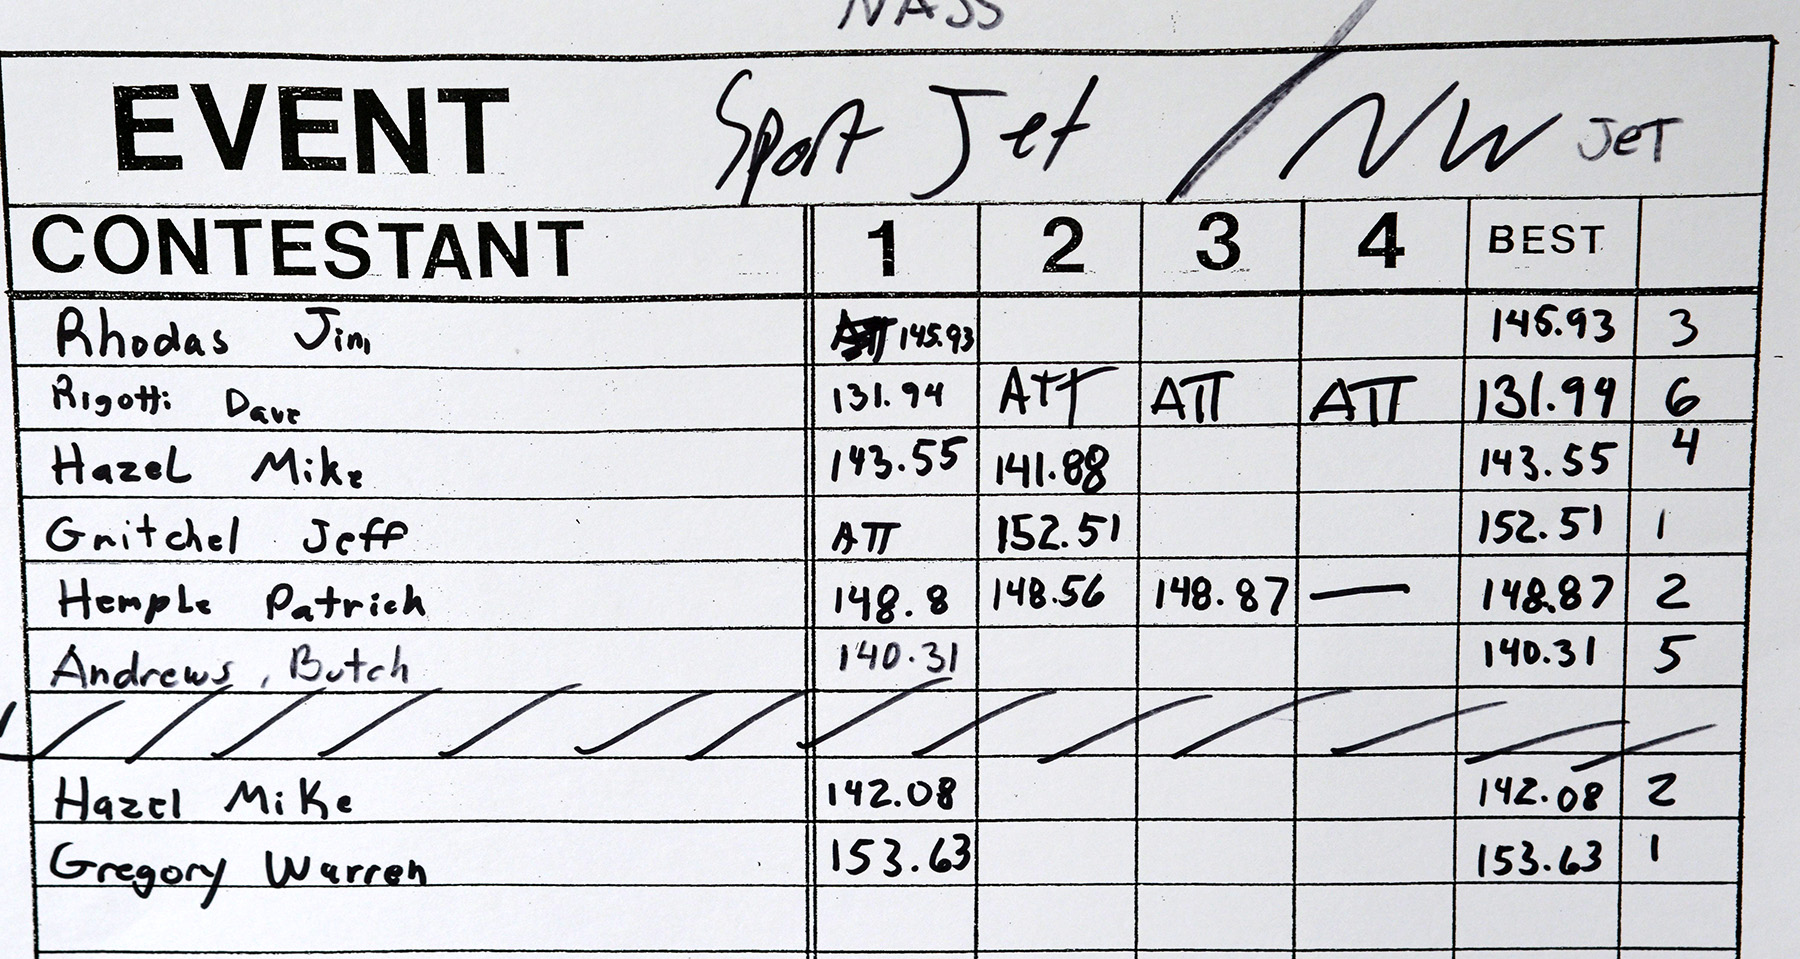 NASS
EVENT Sport Jet / NW JET
CONTESTANT 1 2 3 4 BEST
Rhodas Jim 145.93 145.93 3
Rigotti Dave 131.94 ATT ATT ATT 131.94 6
Hazel Mike 143.55 141.88 143.55 4
Gnitchel Jeff ATT 152.51 152.51 1
Hemple Patrick 148.8 148.56 148.87 — 148.87 2
Andrews, Butch 140.31 140.31 5
Hazel Mike 142.08 142.08 2
Gregory Warren 153.63 153.63 1